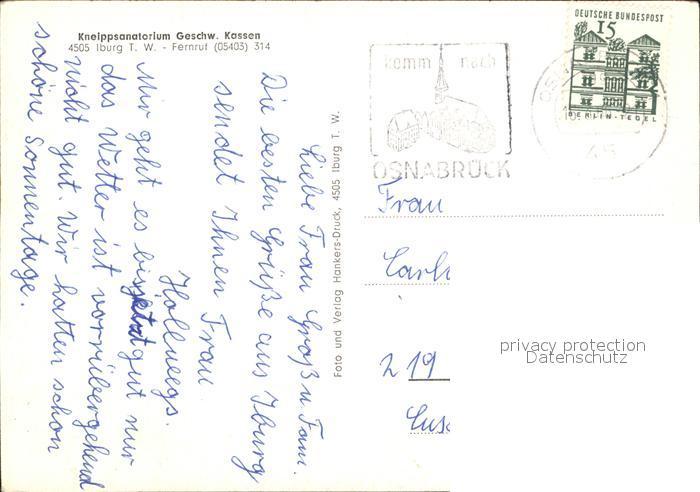 Kneippsanatorium Geschw. Kassen
4505 Iburg T. W. - Fernruf (05403) 314
Liebe Frau Groß u. Fam.
Die besten Grüße aus Iburg
sendet Ihnen Frau
Hollweegs.
Mir geht es bis jetzt gut nur
das Wetter ist vorrübergehend
nicht gut. Wir hatten schon
schöne Sonnentage.
Foto und Verlag Hankers-Druck, 4505 Iburg T. W.
komm nach
OSNABRÜCK
DEUTSCHE BUNDESPOST
15
BERLIN-TEGEL
45
Frau
Carl
219
privacy protection
Datenschutz